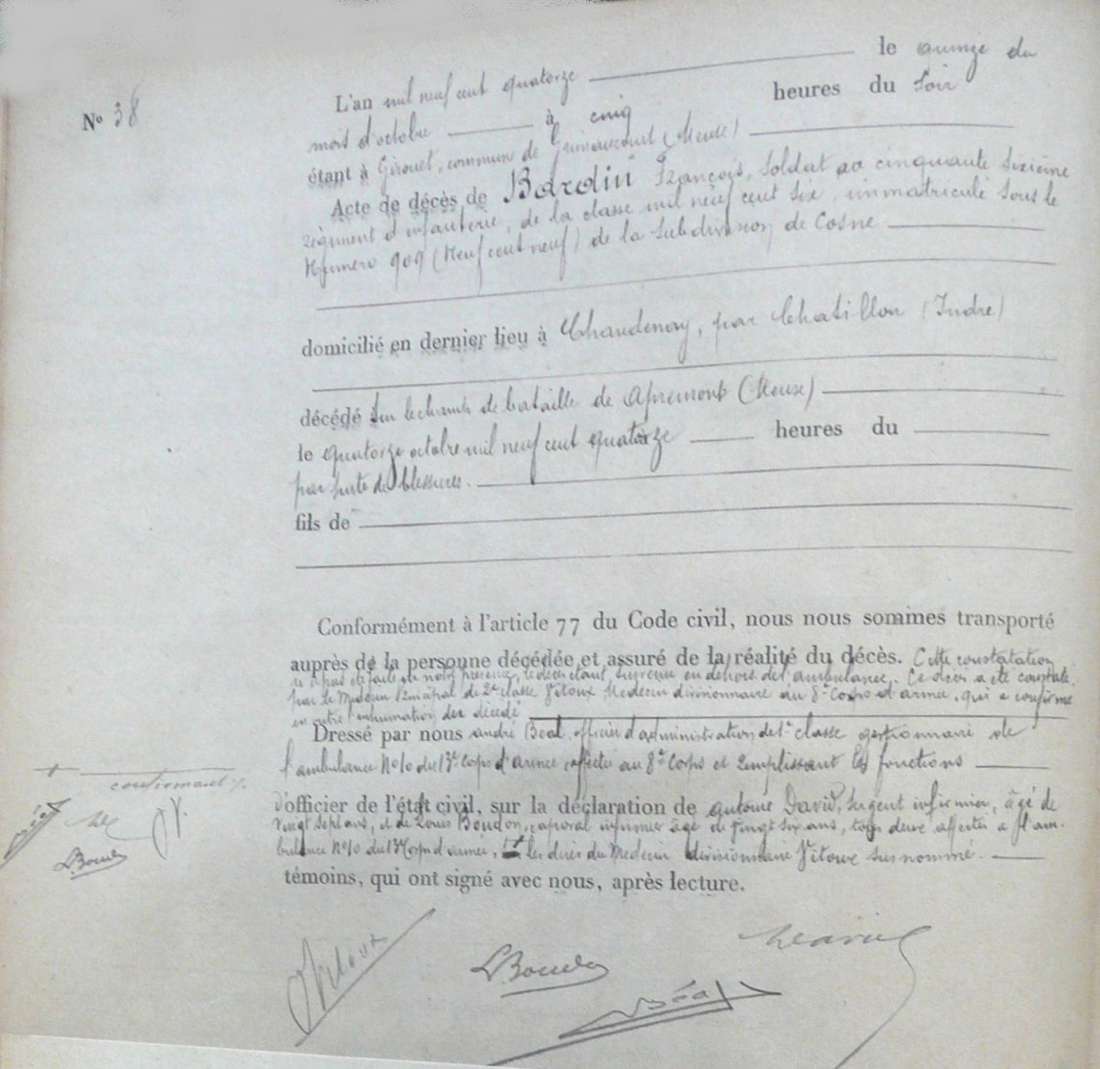 L'an mil neuf cent quatorze le quinze du
N° 38
mois d'octobre à cinq heures du soir
étant à Girouet, commune de Grimaucourt (Meuse)
Acte de décès de Bardin François, Soldat au cinquante sixième
régiment d'infanterie, de la classe mil neuf cent six, immatriculé sous le
Numero 909 (Neuf cent neuf) de la Subdivision de Cosne
domicilié en dernier lieu à Chaudenay, par Chatillon (Indre)
décédé sur le champ de bataille de Apremont (Meuse)
le quatorze octobre mil neuf cent quatorze heures du
par suite de blessures.
fils de
Conformément à l'article 77 du Code civil, nous nous sommes transporté
auprès de la personne décédée et assuré de la réalité du décès. Cette constatation
en dehors de l'ambulance. Ce décès a été constaté
par le Médecin principal de 2e classe Vitoux Médecin divisionnaire au 8e Corps d'armée, qui a confirmé
en outre l'inhumation du décédé
Dressé par nous andré Béal, officier d'administration de 1e classe gestionnaire de
l'ambulance N°10 du 13e Corps d'armée affectée au 8e Corps et remplissant les fonctions
d'officier de l'état civil, sur la déclaration de antoine David, Sergent infirmier, âgé de
vingt sept ans, et de Louis Boudon, caporal infirmier âgé de vingt six ans, tous deux affectés à l'am-
bulance N°10 du 13e Corps d'armée, les dires du Médecin divisionnaire Vitoux susnommé.
témoins, qui ont signé avec nous, après lecture.
Vitoux
LBoudon
Béal